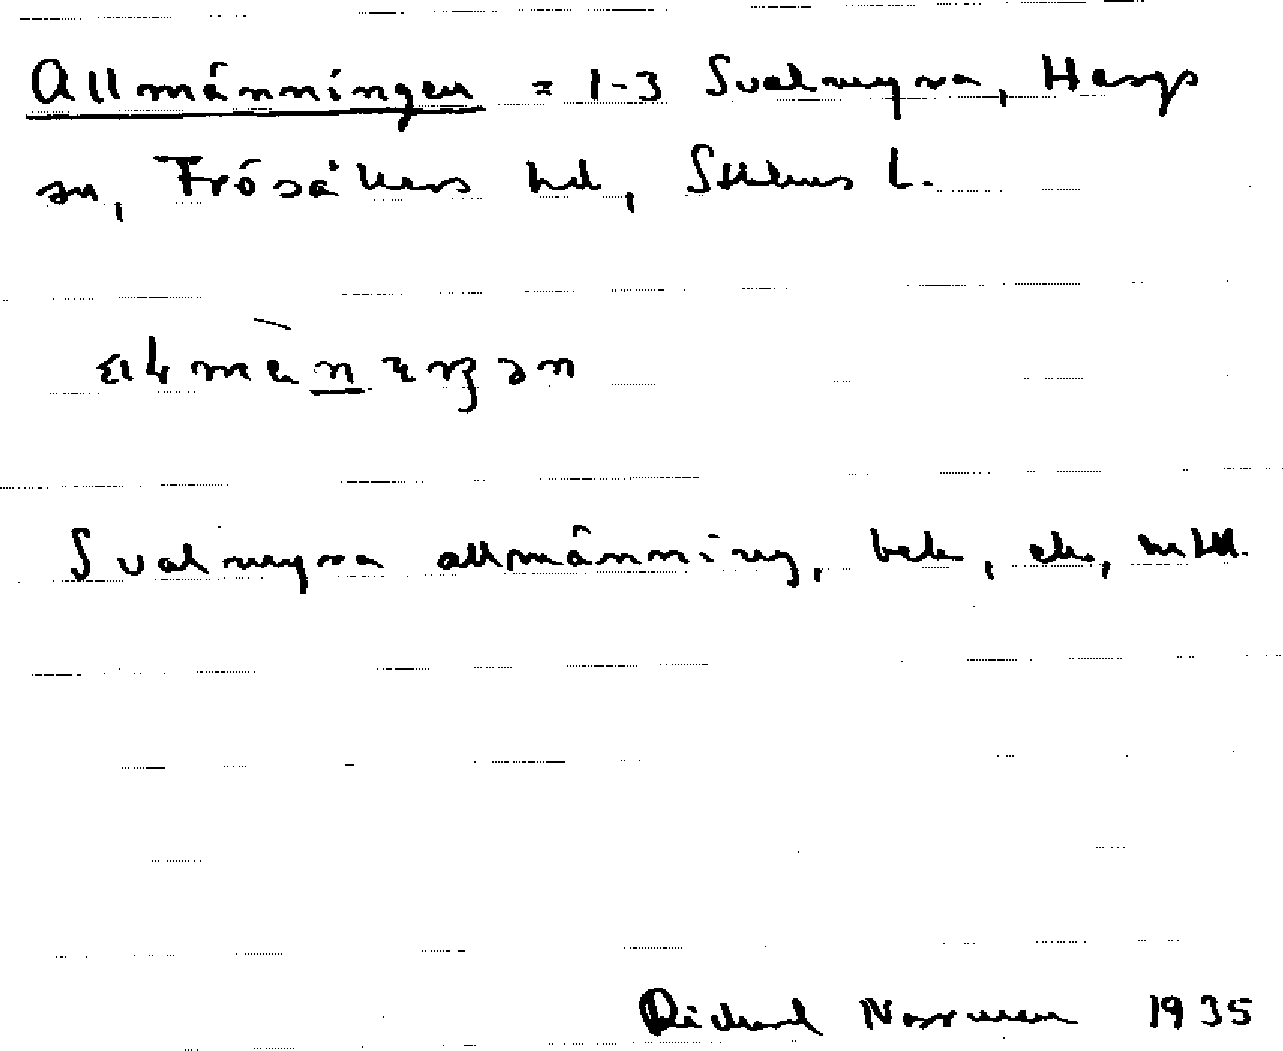 Allmänningen = 1-3 Svalmyra, Hargs
sn, Frösåkers hd, Sthlms l.
Svalmyra allmänning,
Richard Norrman 1935